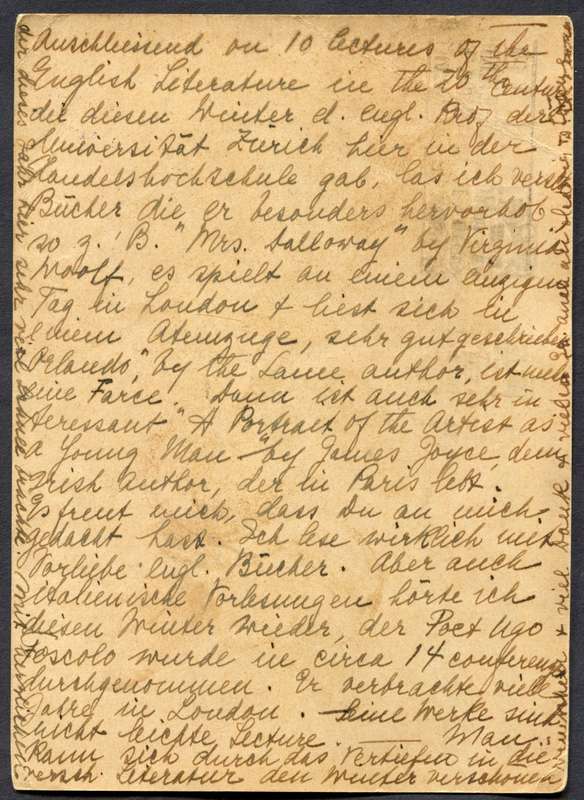 Anschliessend on 10 lectures of the
English Literature in the 20th Century
die diesen Winter d. engl. Prof der
Universität Zürich hier in der
Handelshochschule gab, las ich versch
Bücher die er besonders hervorhob
so z. B. "Mrs. Dalloway" by Virginia
Woolf, es spielt an einem einzigen
Tag in London + liest sich in
einem Atemzuge, sehr gut geschrieben
"Orlando," by the same author, ist mehr
eine Farce. Dann ist auch sehr in-
teressant "A Portrait of the Artist as
a Young Man —" by James Joyce, dem
Irish author, der in Paris lebt.
Es freut mich, dass Du an mich
gedacht hast. Ich lese wirklich mit
Vorliebe engl. Bücher. Aber auch
italienische Vorlesungen hörte ich
diesen Winter wieder, der Poet Ugo
Foscolo wurde in circa 14 conferenze
durchgenommen. Er verbrachte viele
Jahre in London. — Seine Werke sind
nicht leichte Lecture. — Man
kann sich durch das Vertiefen in die
versch. Literatur den Winter verschönen
der dieses Jahr hier sehr viel Schnee brachte. Mit herzlichen
+ viel Dank + viele